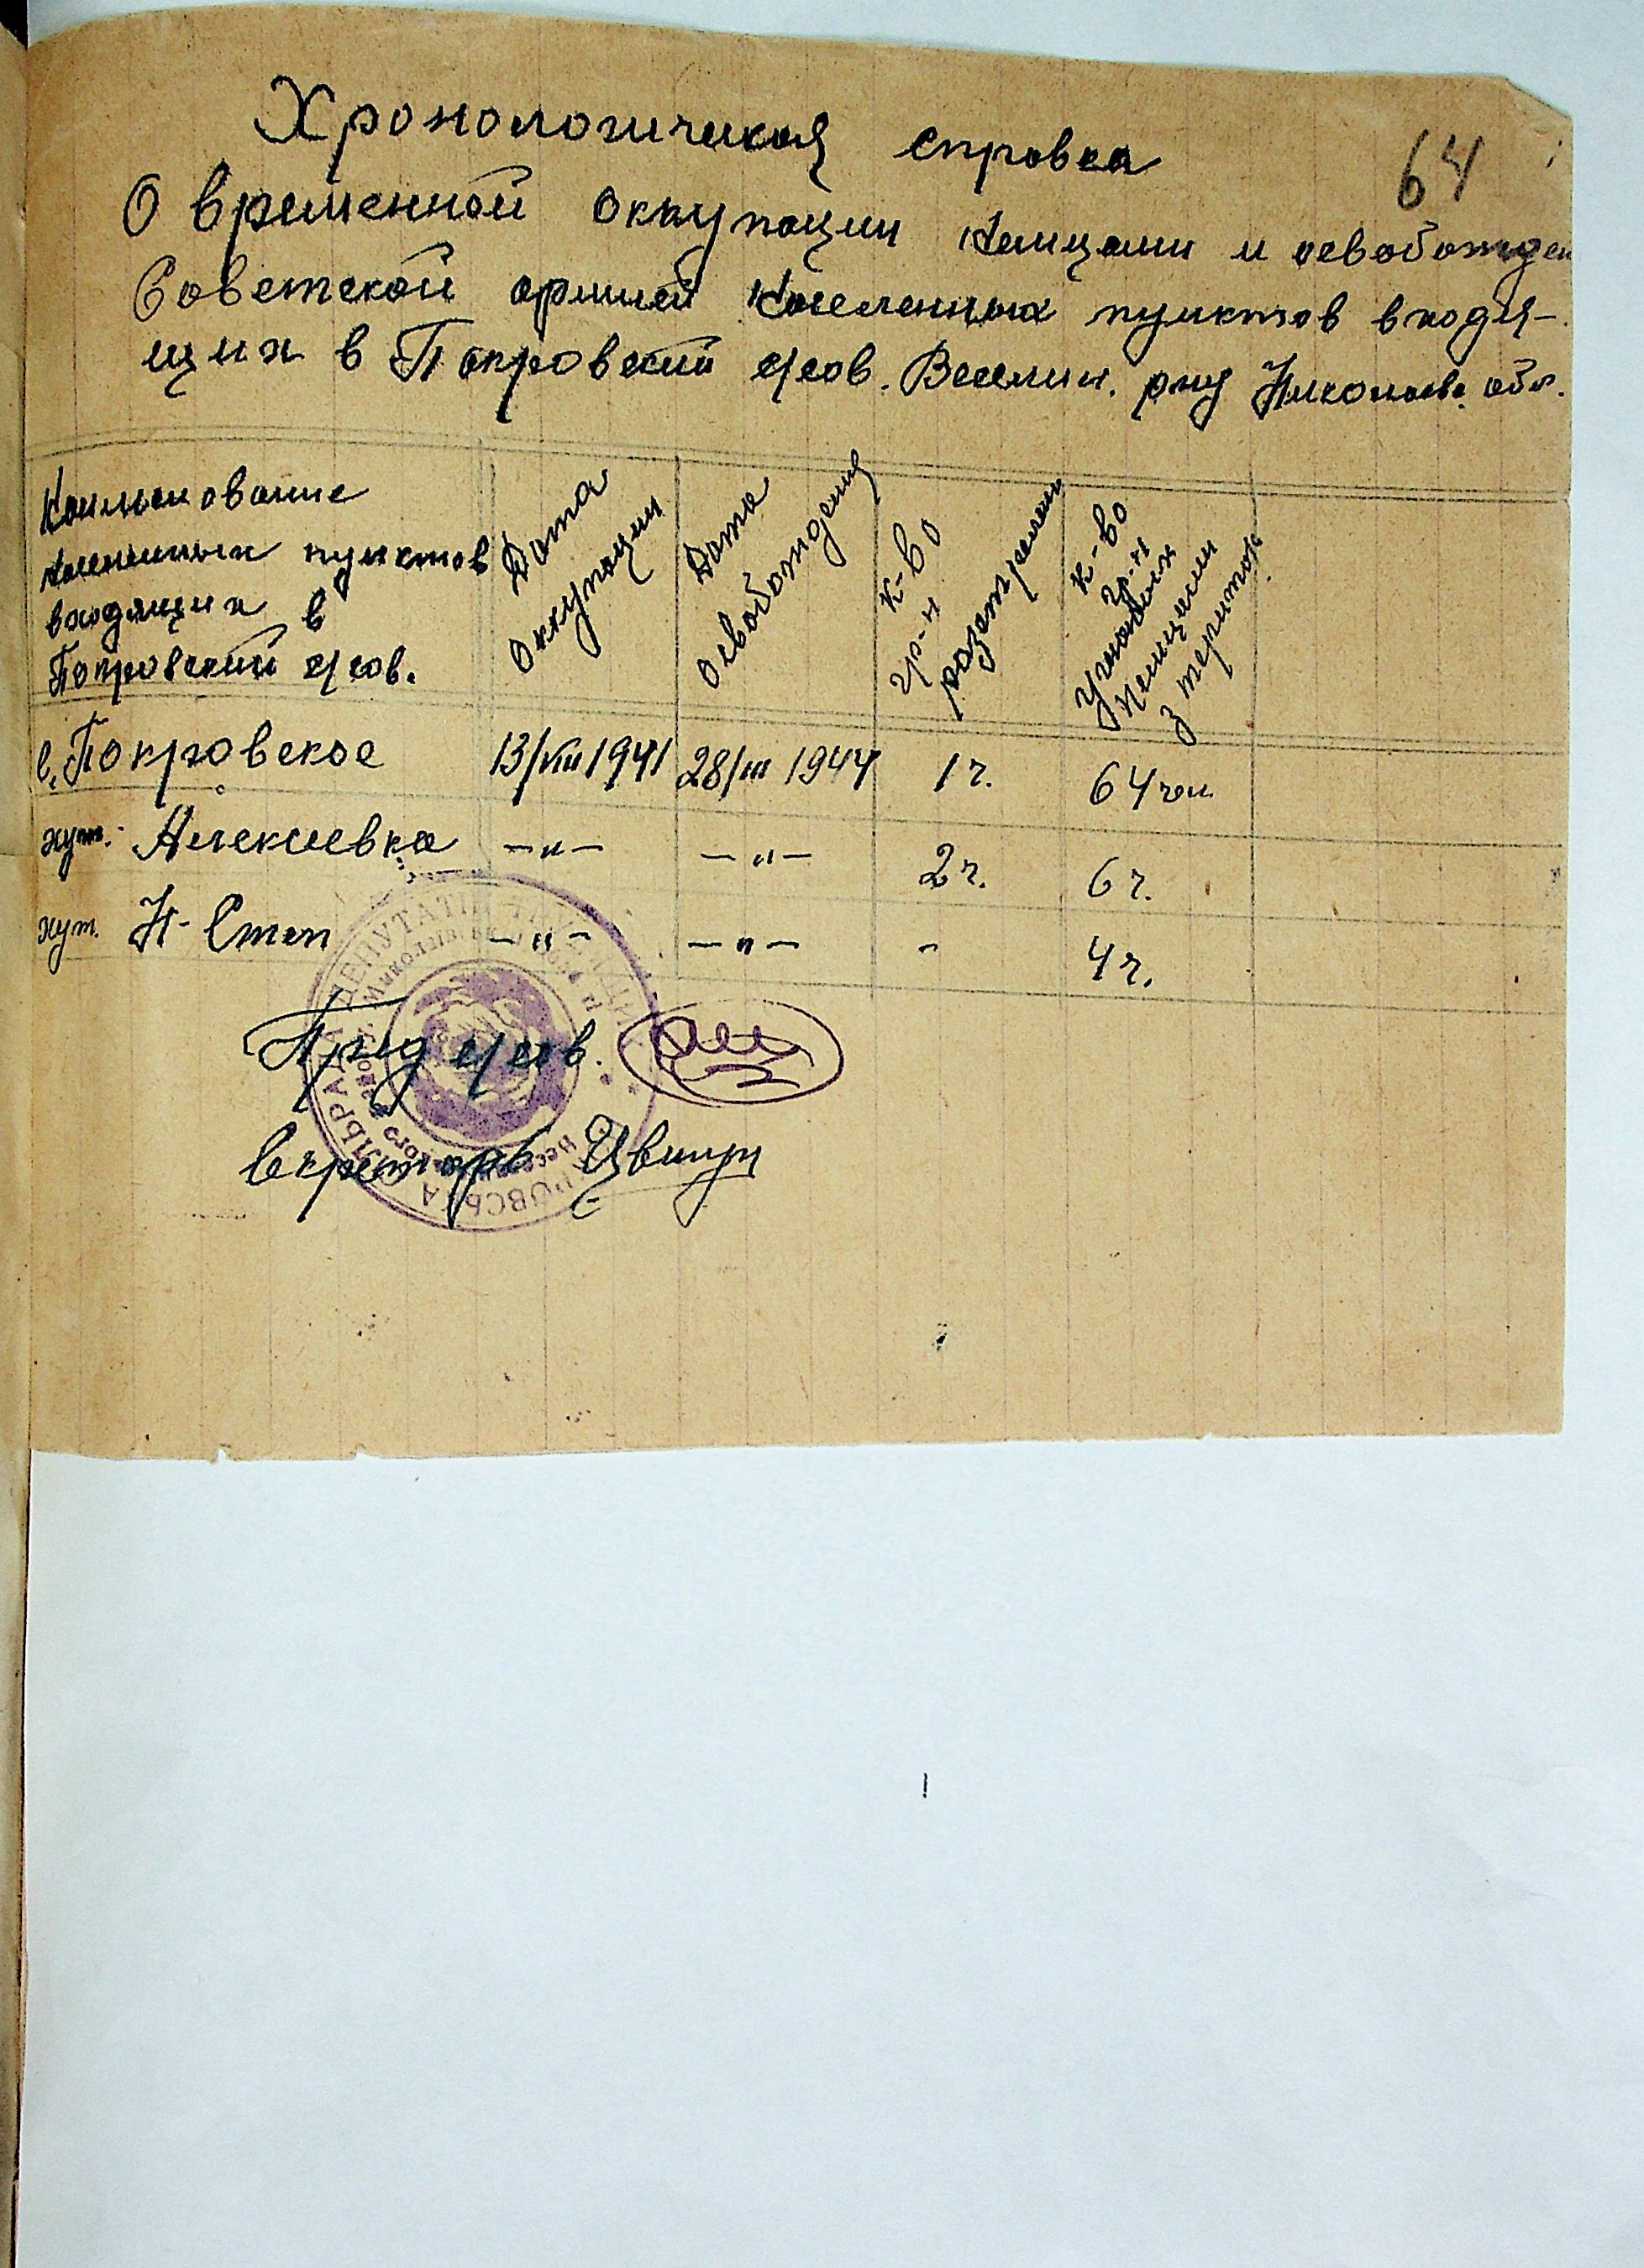 64
Хронологическая справка
О временной оккупации немцами и освобожден
Советской армией населенных пунктов входя-
щих в Покровский с/сов. Веселин. р-ну Николаев. обл.
Наименование
населенных пунктов
входящих в
Покровский с/сов.
Дата
оккупации
Дата
освобождения
К-во
гр-н
разстрелян
К-во
гр-н
угнатых
немцами
з территор.
с. Покровское 13/VIII 1941 28/III 1944 1 ч. 64 чел.
хут. Алексеевка —„— —„— 2 ч. 6 ч.
хут. Н-Степ —„— —„— - 4 ч.
Пред с/сов.
Секретарь
ДЕПУТАТІВ ТРУДЯЩИХ